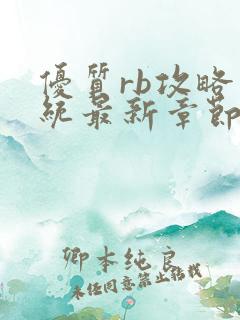 優質rb攻略
統最新章節
卿本純良
未经同意禁止转载